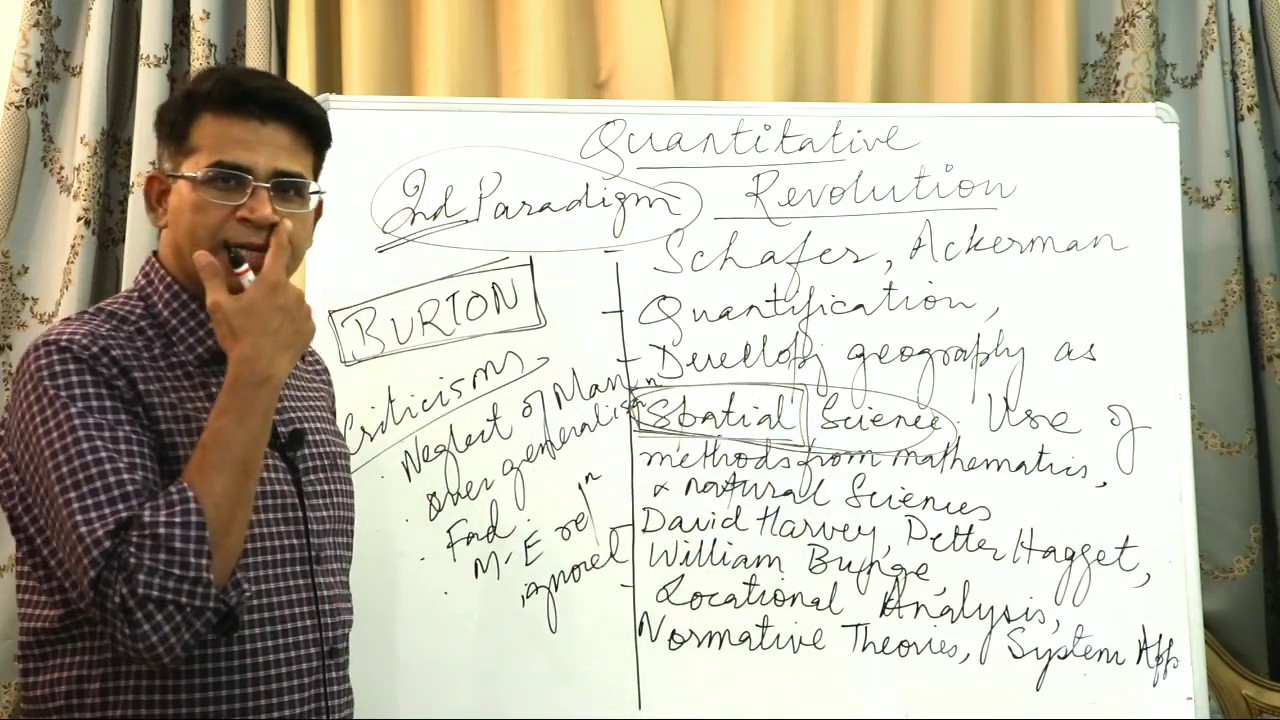 Quantitative
2nd Paradigm Revolution
Schafer, Ackerman
BURTON
Criticisms
. Neglect of Man
. over generalisⁿ
. Fad
. M-E relⁿ
ignored
- Quantification,
- Develop geography as
Spatial Science. Use of
methods from mathematics,
& natural Sciences
- David Harvey, Petter Hagget,
William Bunge,
- Locational Analysis,
Normative Theories, System App